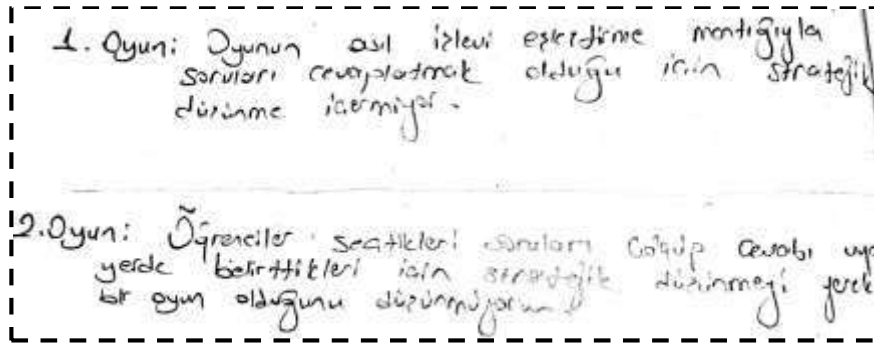 1. Oyun: Oyunun asıl işlevi eşleştirme mantığıyla
soruları cevaplatmak olduğu için stratejik
düşünme içermiyor.
2. Oyun: Öğrenciler seçtikleri soruları çözüp cevabı
yerde belirttikleri için stratejik düşünmeyi
bir oyun olduğunu düşünmüyorum.